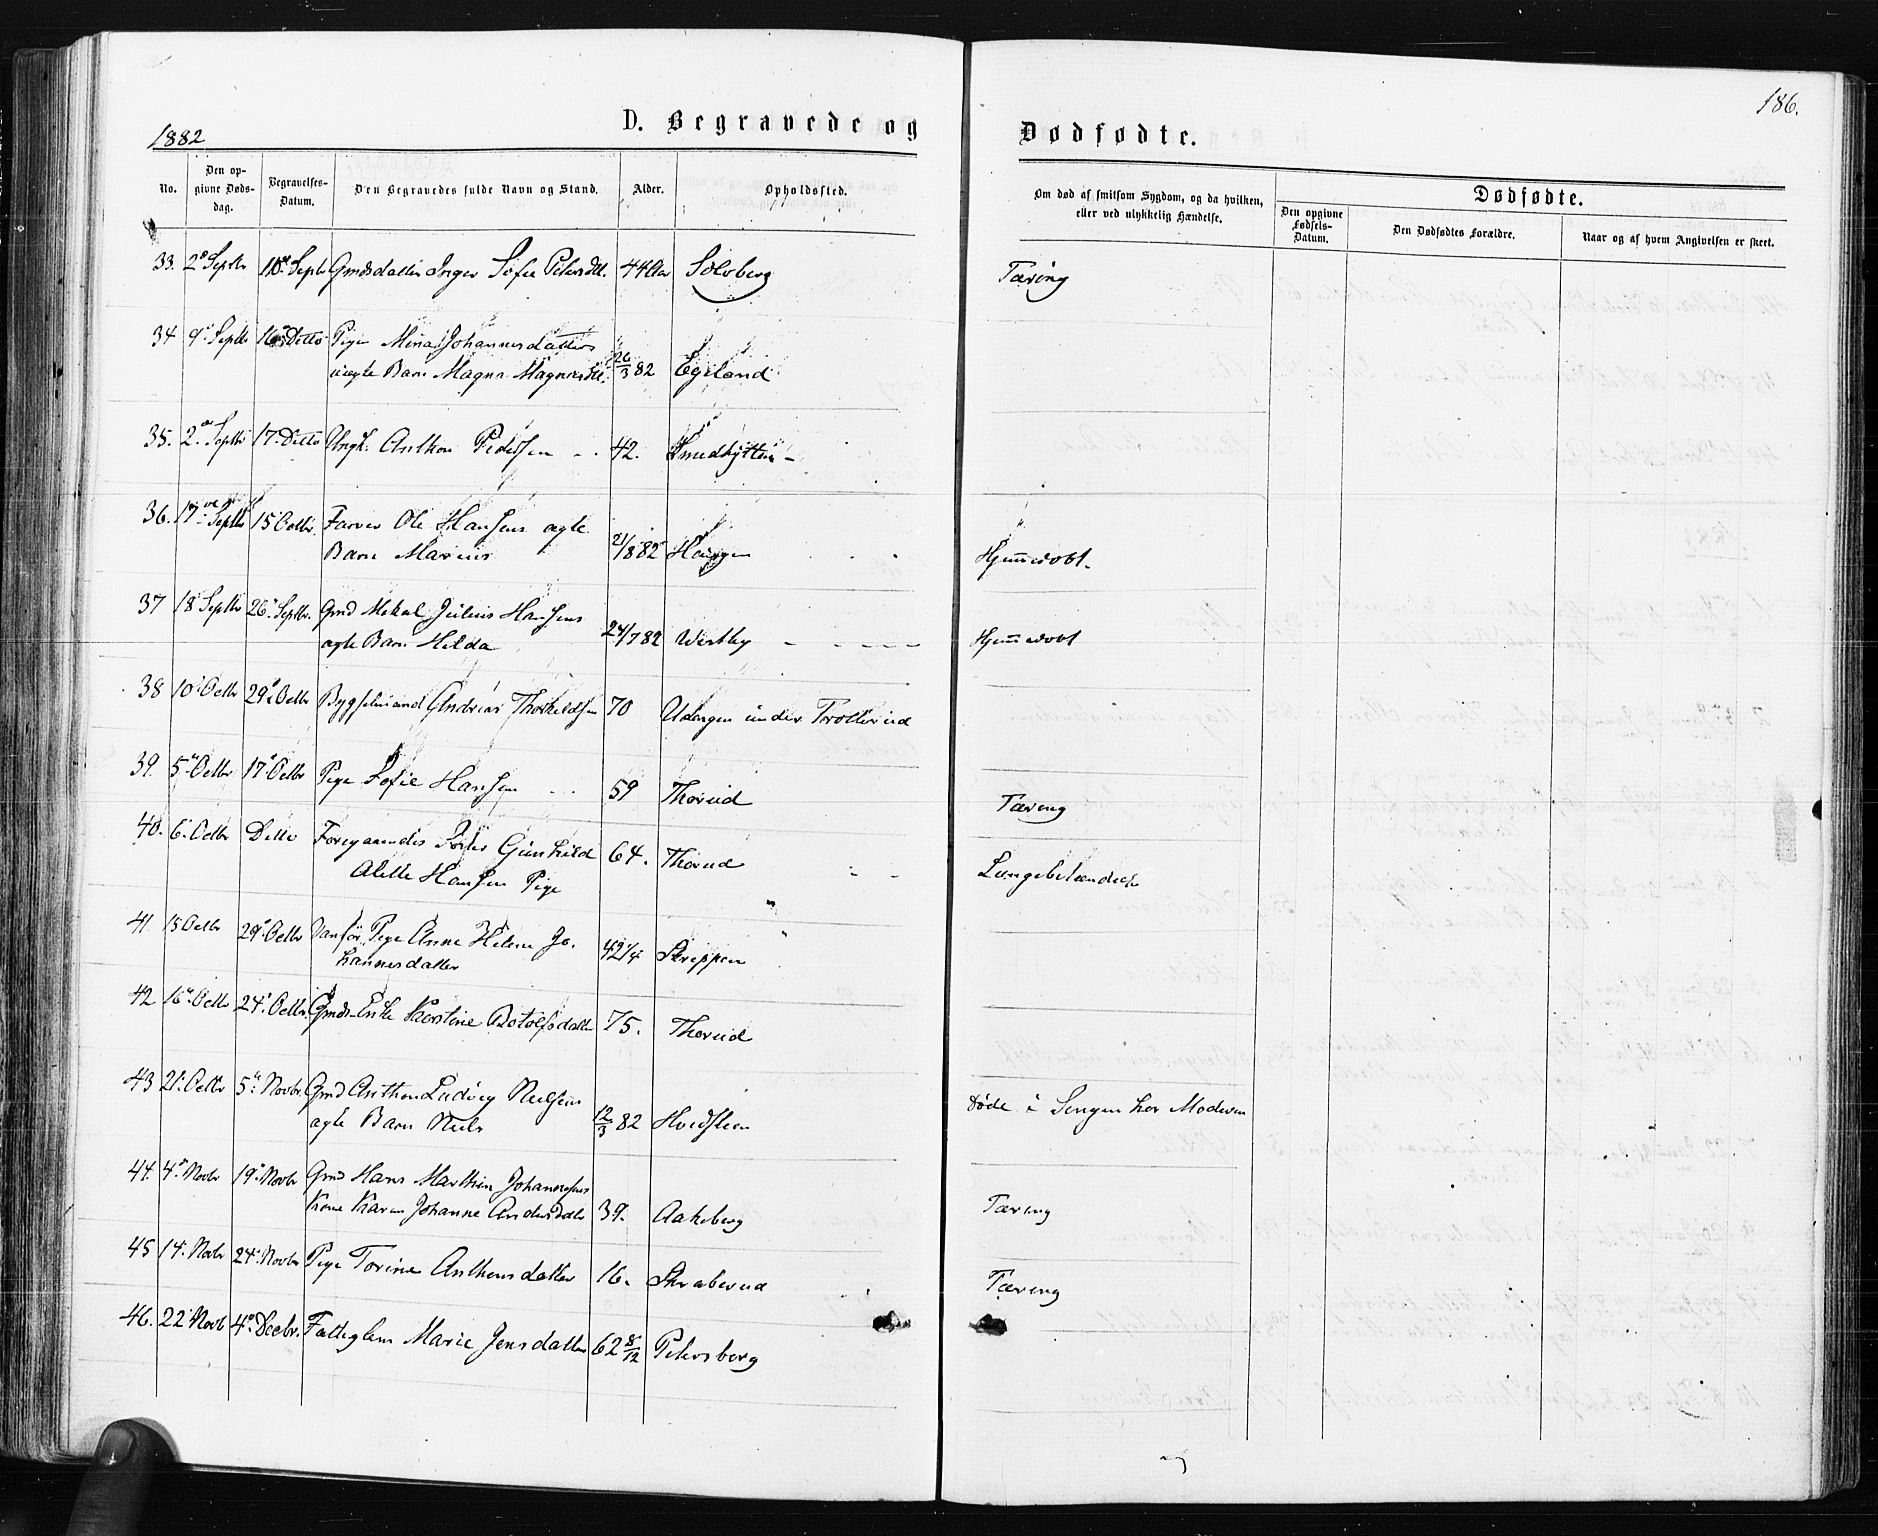 186.
1882
D. Begravede og Dødfødte.
No. Den opgivne Dødsdag. Begravelses-Datum. Den Begravedes fulde Navn og Stand. Alder. Opholdssted. Om død af smitsom Sygdom, og da hvilken, eller ved ulykkelig Hændelse. Dødfødte.
Den opgivne Fødsels-Datum. Den Dødfødtes Forældre. Naar og af hvem Angivelsen er skeet.
33. 2 Septbr 10 Septbr Gmdsdatter Inger Sofie Petersdtt. 44 Aar Solberg Tæring
34 9 Septbr 16 Ditto Pige Mina Johannesdatters
uægte Barn Magna Magnusdtt. 26/3 82 Egeland
35. 2 Septbr 17 Ditto Ungk. Anthon Pedersen 42. Smedhytten
36. 17 Septbr 15 Octbr. Farver Ole Hansens ægte
Barn Marius 21/8 82 Haugen Hjemmedøbt.
37 18 Septbr 26 Septbr. Gmd Mikal Julius Hansens
ægte Barn Hilda 24/7 82 Westby Hjemmedøbt
38 10 Octbr 29 Octbr Bygselmand Andreas Thorkildsen 70 Udengen under Trollerud
39. 5 Octbr 17 Octbr Pige Sofie Hansen 59 Thorud Tæring
40. 6 Octbr Ditto Foregaaendes Søster Gunhild
Alette Hansen Pige 64. Thorud Lungebetændelse
41. 15 Octbr 29 Octbr Vanfør Pige Anne Helene Jo-
hannesdatter 42 1/4 Skreppen
42 16 Octbr 24 Octbr. Gmds-Enke Kirstine Botolfsdatter 75. Thorud
43 21 Octbr 5 Novbr. Gmd Anthon Ludvig Nielsens
ægte Barn Niels 12/3 82 Hvidsteen Døde i Sengen hos Moderen
44. 4 Novbr 19 Novbr Gmd Hans Marthin Johannesens
Kone Karen Johanne Andersdatter 39. Aakeberg Tæring
45 14 Novbr 24 Novbr Pige Torine Anthonsdatter 16. Skraberud Tæring
46. 22 Novb 4 Decbr. Fattiglem Marie Jensdatter 62 8/12 Petersborg